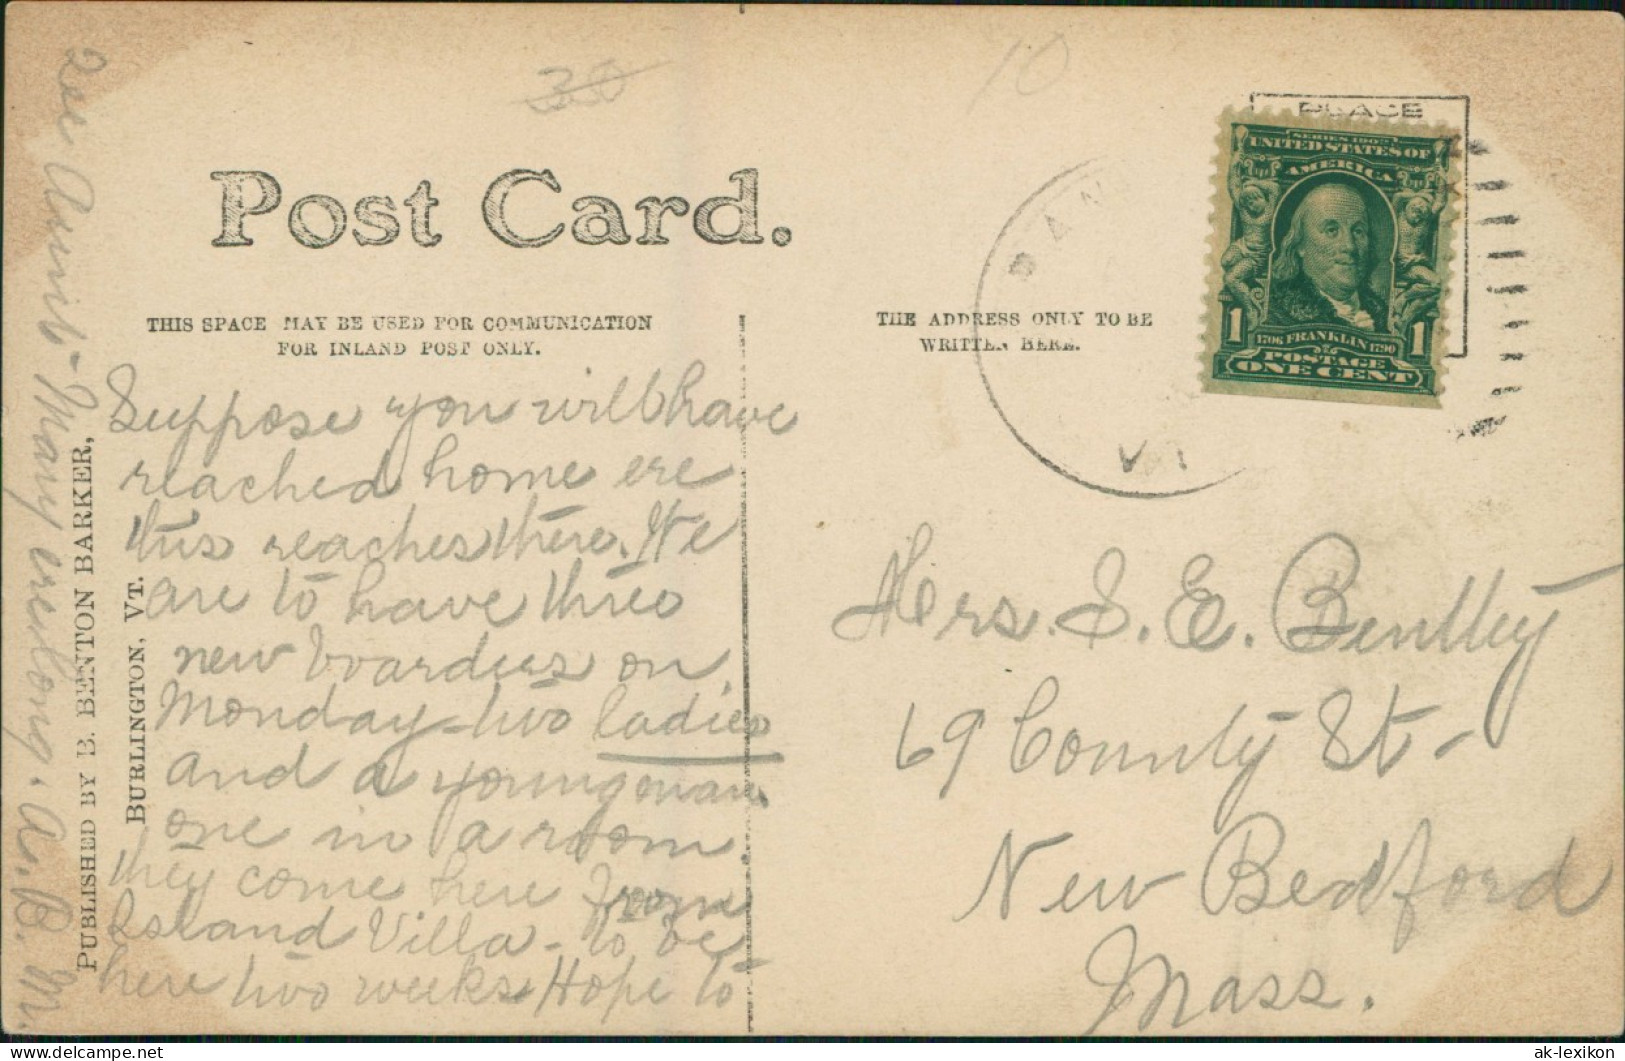 30
10
Post Card.
THIS SPACE MAY BE USED FOR COMMUNICATION
FOR INLAND POST ONLY.
THE ADDRESS ONLY TO BE
WRITTEN HERE.
PLACE
SERIES 1902
UNITED STATES OF
AMERICA
1706 FRANKLIN 1790
POSTAGE
1 ONE CENT 1
VT
Suppose you will have
reached home ere
this reaches there. We
are to have three
new boarders on
Monday - two ladies
and a young man.
one in a room.
They come here from
Island Villa - to be
here two weeks Hope to
see Aunt Mary ere long. A. B. M.
PUBLISHED BY B. BENTON BARKER,
BURLINGTON, VT.
Mrs. S. E. Bentley
69 County St -
New Bedford
Mass.
ak-ansichtskarten.de